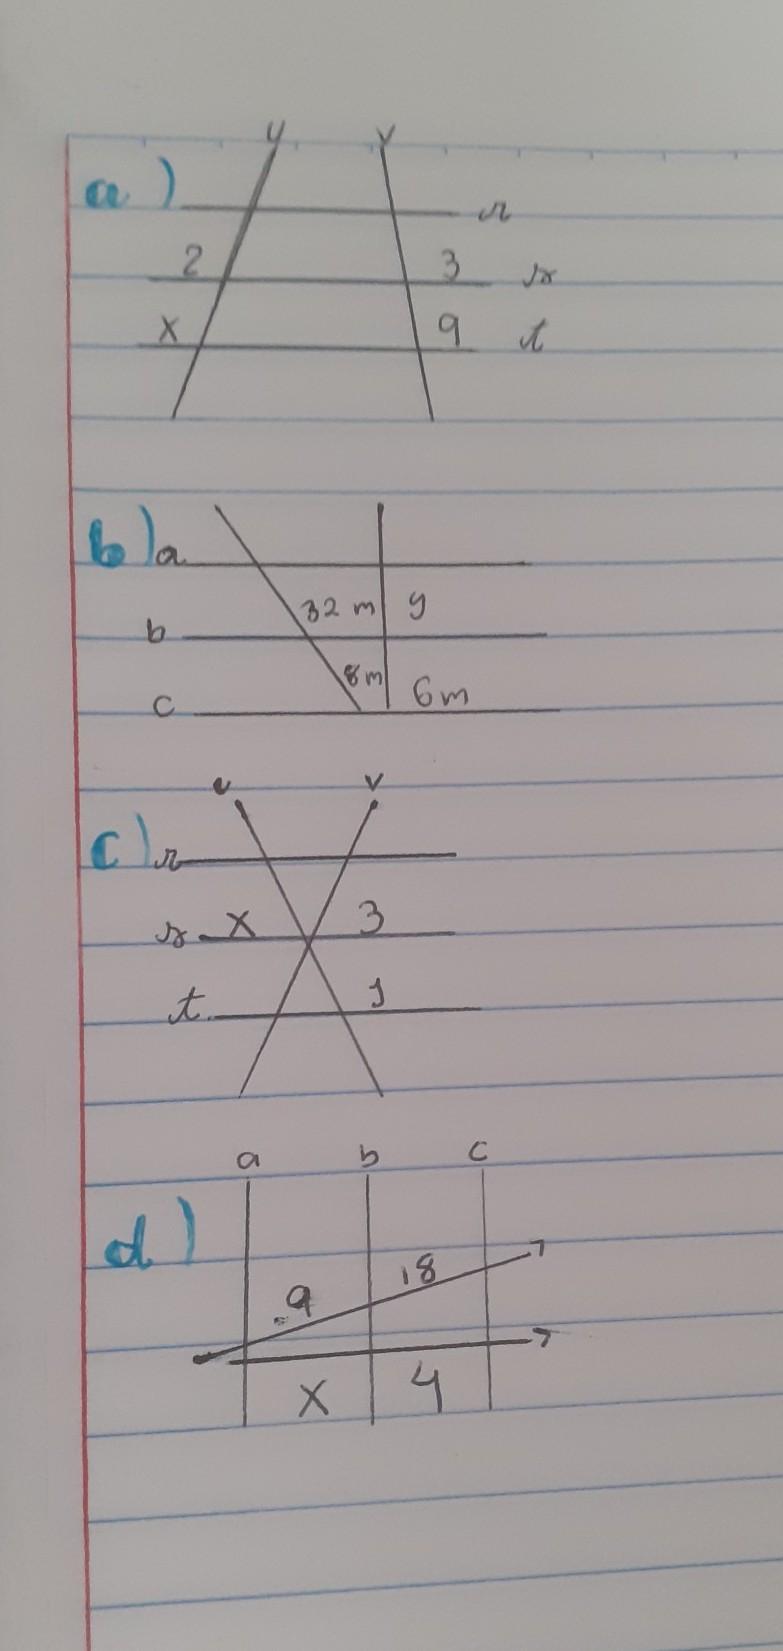 u v
a) r
2 3 s
x 9 t
b) a
32 m y
b
8m 6m
c
u v
c) r
s x 3
t
a b c
d)
9 18
x 4